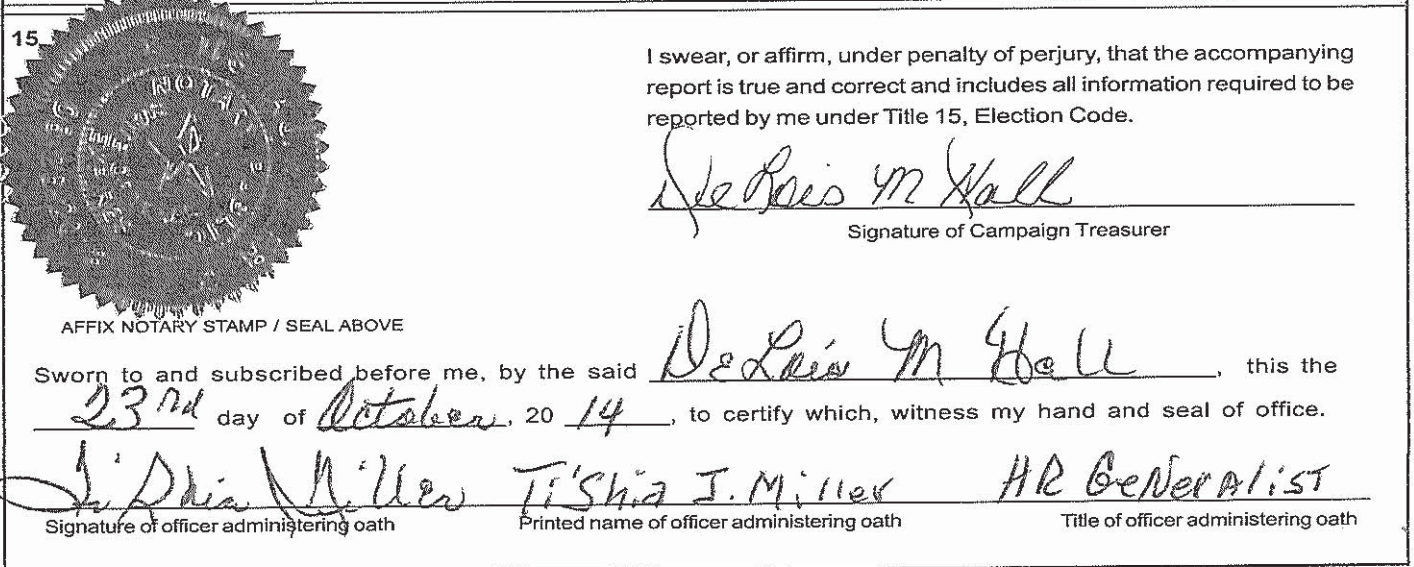 15
NOTA
I swear, or affirm, under penalty of perjury, that the accompanying
report is true and correct and includes all information required to be
reported by me under Title 15, Election Code.
DeLois M Hall
Signature of Campaign Treasurer
AFFIX NOTARY STAMP / SEAL ABOVE
Sworn to and subscribed before me, by the said DeLois M Hall, this the
23rd day of October, 20 14, to certify which, witness my hand and seal of office.
Ti'Shia Miller Ti'Shia J. Miller HR GeNerAlisT
Signature of officer administering oath Printed name of officer administering oath Title of officer administering oath